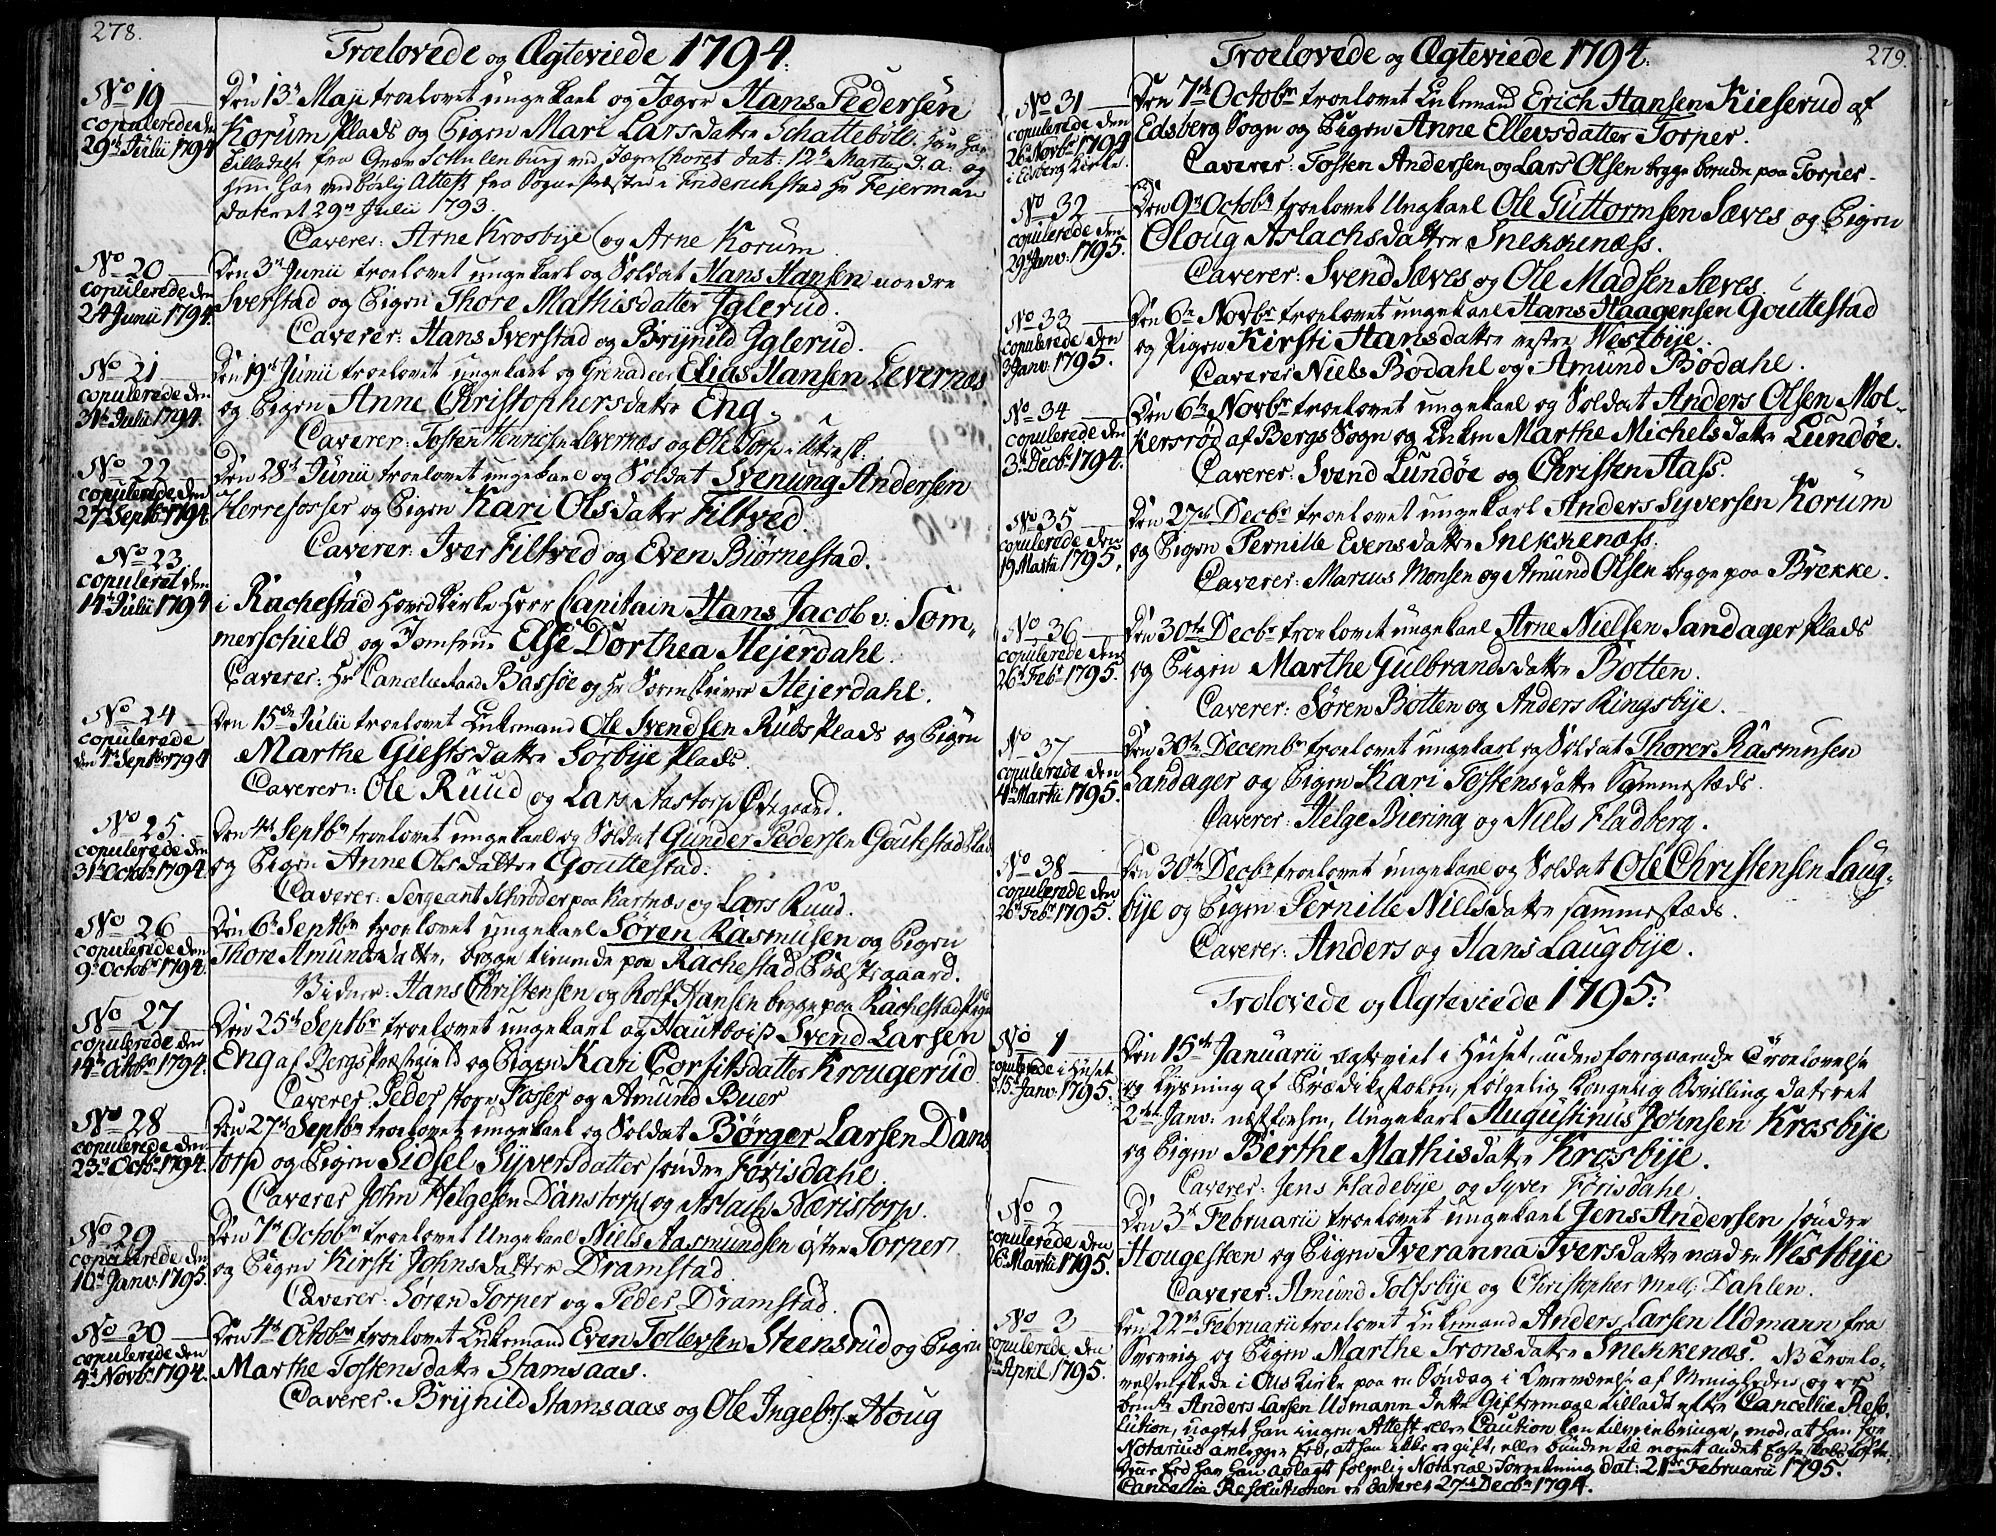 278.
Troelovede og Ægteviede 1794.
No 19
copulerede den
29de Julii 1794
Den 13de Maji troelovet ungekarl og Jæger Hans Pedersen
Korum Plads og Pigen Mari Larsdatter Schattebøle. Han har
Tilladelse fra Grev Schulenburg ved Jæger Choret dat: 12te Martii d. a. og
hun har ved børlig Attest fra Sogne Præsten i Friderichstad Hr Fejerman
dateret 29de Julii 1793.
Caverer: Arne Krosbije og Arne Korum.
No 20
copulerede den
24 Junii 1794.
Den 3de Junii troelovet ungekarl og Soldat Hans Hansen nordre
Sverstad og Pigen Thore Mathisdatter Iglerud.
Caverer: Hans Sverstad og Brijnild Iglerud.
No 21
copulerede den
31te Julii 1794.
Den 19de Junii troelovet ungekarl og Grenadeer Elias Hansen Levernæs
og Pigen Anne Christophersdatter Eng.
Caverer: Tosten Henrichsen Levernæs og Ole Torp
No 22
copulerede den
27de Septbr 1794
Den 28de Junii troelovet ungekarl og Soldat Svenung Andersen
Herrefosser og Pigen Kari Olsdatter Filtved.
Caverer: Iver Filtved og Even Biørnestad.
No 23
copuleret den
14de Julii 1794
i Rachestad Hovedkirke Herr Capitain Hans Jacob v: Som-
merschield og Jomfrue Else Dorthea Hejerdahl.
Caverer: Hr Cancelieraad Bassøe og Hr Sorenskriver Hejerdahl.
No 24
copulerede
den 4de Septbr 1794
Den 15de Julii troelovet Enkemand Ole Svendsen Ruds Plads og Pigen
Marthe Giestsdatter Sorbije Plads.
Caverer: Ole Ruud og Lars Aastorp Ødegaard.
No 25
copulerede den
31te Octobr 1794
Den 4de Septbr troelovet ungekarl og Soldat Gunder Pedersen Goutestad Plads
og Pigen Anne Olsdatter Gouttestad.
Caverer: Sergeant Schrøder paa Kartnæs og Lars Ruud.
No 26
copulerede den
9de Octobr 1794.
Den 6te Septbr troelovet ungekarl Søren Rasmusen og Pigen
Thore Amundsdatter, begge tienende paa Rachestad Præstegaard.
Vidner: Hans Christensen og Rolf Hansen begge paa Rachestad Præstegrd
No 27
copulerede den
14de Octbr 1794.
Den 25de Septbr troelovet ungekarl og Hautboist Svend Larsen
Eng af Bergs Præstegield og Pigen Kari Corfitsdatter Krougerud
Caverer: Peder store Fosser og Amund Buer
No 28
copulerede den
23de Octbr 1794.
Den 27de Septbr troelovet ungekarl og Soldat Børger Larsen Dans
torp og Pigen Sidsel Syversdatter søndre Førisdahl.
Caverer John Helgesen Danstorp og Aslach Næristorp.
No 29
copulerede den
10de Janv: 1795.
Den 1de Octobr troelovet Ungekarl Niels Aasmundsen østre Torper
og Pigen Kirsti Johnsdatter Dramstad
Caverer: Søren Torper og Peder Dramstad.
No 30
copulerede den
4de Novbr 1794.
Den 4de Octobr troelovet Enkemand Even Tollevsen Steensrud og Pigen
Marthe Tostensdatter Stamsaas.
Caverer: Brijnild Stamsaas og Ole Ingebr: Houg
279.
Troelovede og Ægteviede 1794.
No 31
copulerede den
26de Novbr 1794
i Edsberg Kirke
Den 7de Octobr troelovet Enkemand Erich Hansen Kieserud af
Edsberg Sogn og Pigen Anne Ellevsdatter Torper.
Caverer: Tosten Andersen og Lars Olsen begge boende paa Torper.
No 32
copulerede den
29de Janv: 1795.
Den 9de Octobr troelovet Ungkarl Ole Guttormsen Sæves og Pigen
Oloug Aslachsdatter Snekkenæss.
Caverer: Svend Sæves og Ole Madsen Sæves.
No 33
copulerede den
3 Janv: 1795.
Den 6te Novbr troelovet ungekarl Hans Haagensen Gouttestad
og Pigen Kirsti Hansdatter vestre Westbije.
Caverer Niels Bødahl og Amund Bødahl.
No 34
copulerede den
3de Decbr 1794.
Den 6te Novbr troelovet ungekarl og Soldat Anders Olsen Mol-
kersrød af Bergs Sogn og Enken Marthe Michelsdatter Lundøe.
Caverer: Svend Lundøe og Christen Aass.
No 35
copulerede den
19 Martii 1795.
Den 27de Decbr troelovet ungekarl Anders Syversen Korum
og Pigen Pernille Evensdatter Snekkenæss.
Caverer: Marcus Monsen og Amund Olsen begge paa Brekke.
No 36
copulerede den
26de Febr 1795.
Den 30te Decbr troelovet ungekarl Arne Nielsen Sandager Plads
og Pigen Marthe Gulbrandsdatter Botten.
Caverer: Søren Botten og Anders Ringsbije.
No 37
copulerede den
4de Martii 1795.
Den 30te Decembr troelovet ungekarl og Soldat Thorer Rasmusen
Sandager og Pigen Kari Tostensdatter Sammestæds.
Caverer: Helge Biering og Niels Fladberg.
No 38
copulerede den
26de Febr 1795.
Den 30te Decbr troelovet ungekarl og Soldat Ole Christensen Laug-
bije og Pigen Pernille Nielsdatter sammestæds.
Caverer: Anders og Hans Laugbije.
Trolovede og Ægteviede 1795.
No 1
copulerede i Huset
d. 15de Janv: 1795.
Den 15de Januarii ægteviet i Huset, uden foregaaende Troelovelse
og Lysning af Prædikestolen, følgelig Kongelig Bevilling dateret
2den Janv: næstforhen, Ungekarl Augustinus Johnsen Krosbije
og Pigen Berthe Mathisdatter Krosbije.
Caverer: Jens Fladebije og Syver Førisdahl.
No 2
copulerede den
26de Martii 1795.
Den 3de Februarii troelovet ungekarl Jens Andersen søndre
Hougesteen og Pigen Iveranna Iversdatter nædre Westbije
Caverer: Amund Tolfsbije og Christopher Mell: Dahlen.
No 3
copulerede den
April 1795.
Den 22de Februarii troelovet Enkemand Anders Larsen Udmann fra
og Pigen Marthe Tronsdatter Snekkenæs. NB Troelo-
velsen skede i Aas Kirke paa en Søndag i Overværelse af Menigheden og er
Anders Larsen Udmann dette Giftermaal tilladt efter Cancellie Reso-
lution, uagtet han ingen Attest eller Caution kan tilveiebringe, mod, at han for
Notarius aflegger Eed, at han ikke er gift, eller bunden til noget andet Egteskabs Løfte.
Denne Eed har han aflagt følgelig Notarial Forretning dat: 21de Februarii 1795.
Cancellie Resolutionen er dateret 27de Decbr 1794.